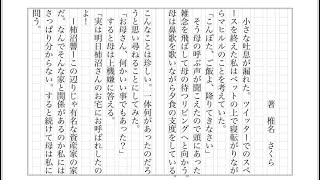 著　椎名　さくら
小さな吐息が漏れた。ツイッターでのスペ
ースを終えた私はベットの上で寝転がりなが
らマヒルのことを考えていた。
「こんばた、ご飯よ、降りてきなさい」
そう母の呼ぶ声が聞こえたので頭にあった
雑念を飛ばして母の待つリビングへと向かう。
母は鼻歌を歌いながら夕食の支度をしている。
こんなことは珍しい。一体何があったのだろ
うと思い尋ねることにしてみた。
「お母さん、何かいい事でもあった？」
すると母は上機嫌に答える。
「実は明日柿沼さんのお宅にお呼ばれしたの
よ！」
ー柿沼響ーこの辺りじゃ有名な資産家の家
だ。なんでそんな家と関係があるのか私には
さっぱり分からない。すると続けて母は私に
問う。